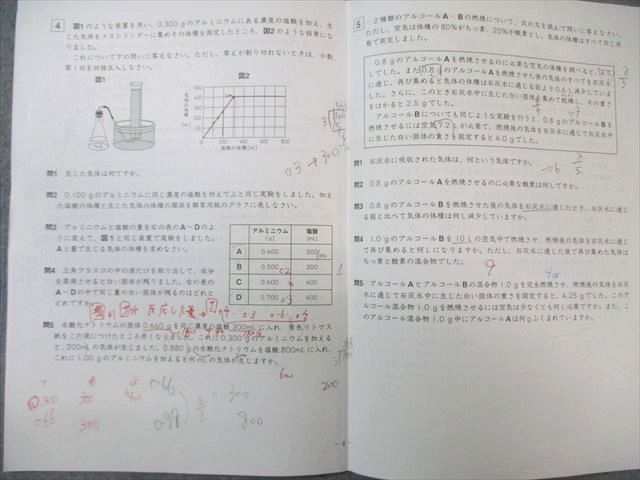 4 図1のような装置を用い、0.300gのアルミニウムにある濃度の塩酸を加え、生
じた気体をメスシリンダーに集めその体積を測定したところ、図2のような結果にな
りました。
これについて下の問いに答えなさい。ただし、答えが割り切れないときは、小数
第1位を四捨五入しなさい。
図1
図2
塩酸の体積[mL]
問1 生じた気体は何ですか。
問2 0.100gのアルミニウムに同じ濃度の塩酸を加えて上と同じ実験をしました。加え
た塩酸の体積と生じた気体の体積の関係を解答用紙のグラフに表しなさい。
問3 アルミニウムと塩酸の量を右の表のA～Dのよ
うに変えて、図1と同じ装置で実験をしました。
AとBで生じる気体の体積を求めなさい。
アルミニウム[g] 塩酸[mL]
A 0.400 500
B 0.500 300
C 0.600 600
D 0.700 400
問4 三角フラスコの中の液だけを取り出して、水分
を蒸発させると白い固体が残りました。右の表の
A～Dの中で同じ量の白い固体が残るのはどれと
どれですか。
問5 水酸化ナトリウムの固体0.660gを同じ濃度の塩酸300mLに入れ、青色リトマス
紙をこの液につけたところ赤くなりました。これに0.300gのアルミニウムを入れる
と、200mLの気体が生じました。0.880gの水酸化ナトリウムを塩酸800mLに入れ、
これに1.00gのアルミニウムを加えると何mLの気体が生じますか。
0.66
300
0.88
800
5 2種類のアルコールA・Bの燃焼について、次の文を読んで問いに答えなさい。
ただし、空気は体積の80%がちっ素、20%が酸素とし、気体の体積はすべて同じ状
態で測定しました。
0.8gのアルコールAを燃焼させるのに必要な空気の体積を調べると、4.5L
でした。また0.8gのアルコールAを燃焼させた後の気体のすべてを石灰水
に通じ、再び集めると気体の体積は石灰水に通じる前より0.6L減少していま
した。さらに、このとき石灰水中に生じた白い固体を集めて乾燥し、その重さ
をはかると2.5gでした。
アルコールBについても同じような実験を行うと、0.8gのアルコールBを
燃焼させるには空気7.2Lが必要で、燃焼後の気体を石灰水に通じて石灰水中
に生じた白い固体の重さを測定すると4.0gでした。
問1 石灰水に吸収された気体は、何という気体ですか。
問2 0.8gのアルコールAを燃焼するのに必要な酸素は何Lですか。
問3 0.8gのアルコールBを燃焼させた後の気体を石灰水に通じたとき、石灰水に通じ
る前と比べて気体の体積は何L減少していますか。
問4 1.0gのアルコールBを10Lの空気中で燃焼させ、燃焼後の気体を石灰水に通じ
て再び集めると何Lになりますか。ただし、石灰水に通じた後で再び集めた気体は
ちっ素と酸素の混合物でした。
問5 アルコールAとアルコールBの混合物1.0gを完全燃焼させ、燃焼後の気体を石灰水
に通じて石灰水中に生じた白い固体の重さを測定すると、4.25gでした。このア
ルコール混合物1.0gを燃焼させるには空気は少なくとも何L必要ですか。また、こ
のアルコール混合物1.0g中にアルコールAは何gふくまれていますか。